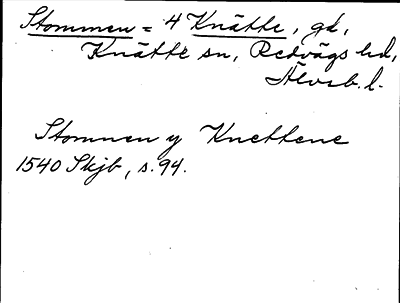 Stommen = 4 Knätte, gd,
Knätte sn, Redvägs hd,
Älvsb. l.
Stommen y Knettene
1540 Skjb, s. 94.